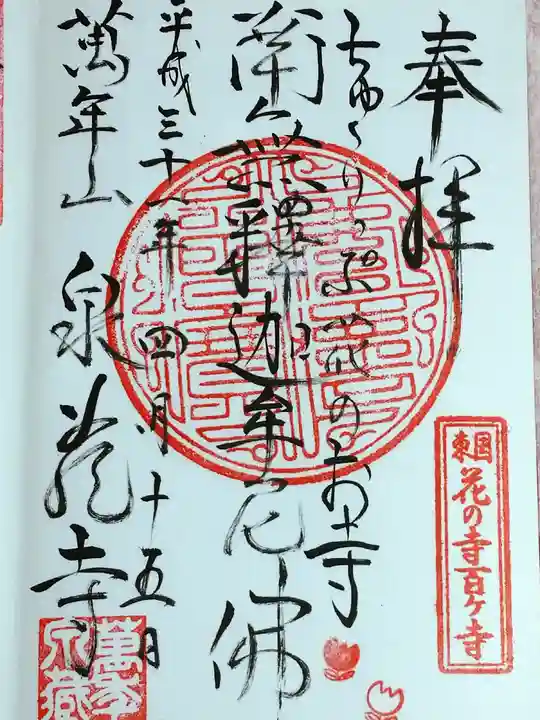 奉拝
ちゅうりっぷ花のお寺
南無釋迦牟尼佛
平成三十一年四月十五日
萬年山 泉蔵寺
東国
花の寺百ヶ寺